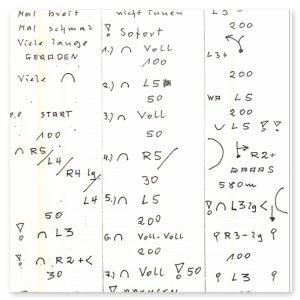 Mal breit
Mal schmal
Viele lange
GERADEN
Viele ∩
0.0 START
100
∩ R5/
L4/
R4 lg/
L4
50
! ∩ L3
! ∩ R2+<
30
nicht innen
! Sofort
1.) ∩ Voll
100
2.) ∩ L5
50
3.) ∩ Voll
50
4.) ∩ R5/
30
5.) ∩ L5
200
6. ∩ Voll-Voll
200
7.) ∩ Voll ! 50
200
L3+
200
WA L5
200
∪ L5 ! !
R2+
580m
! ∩ L3 lg <
R3-lg
100
L3